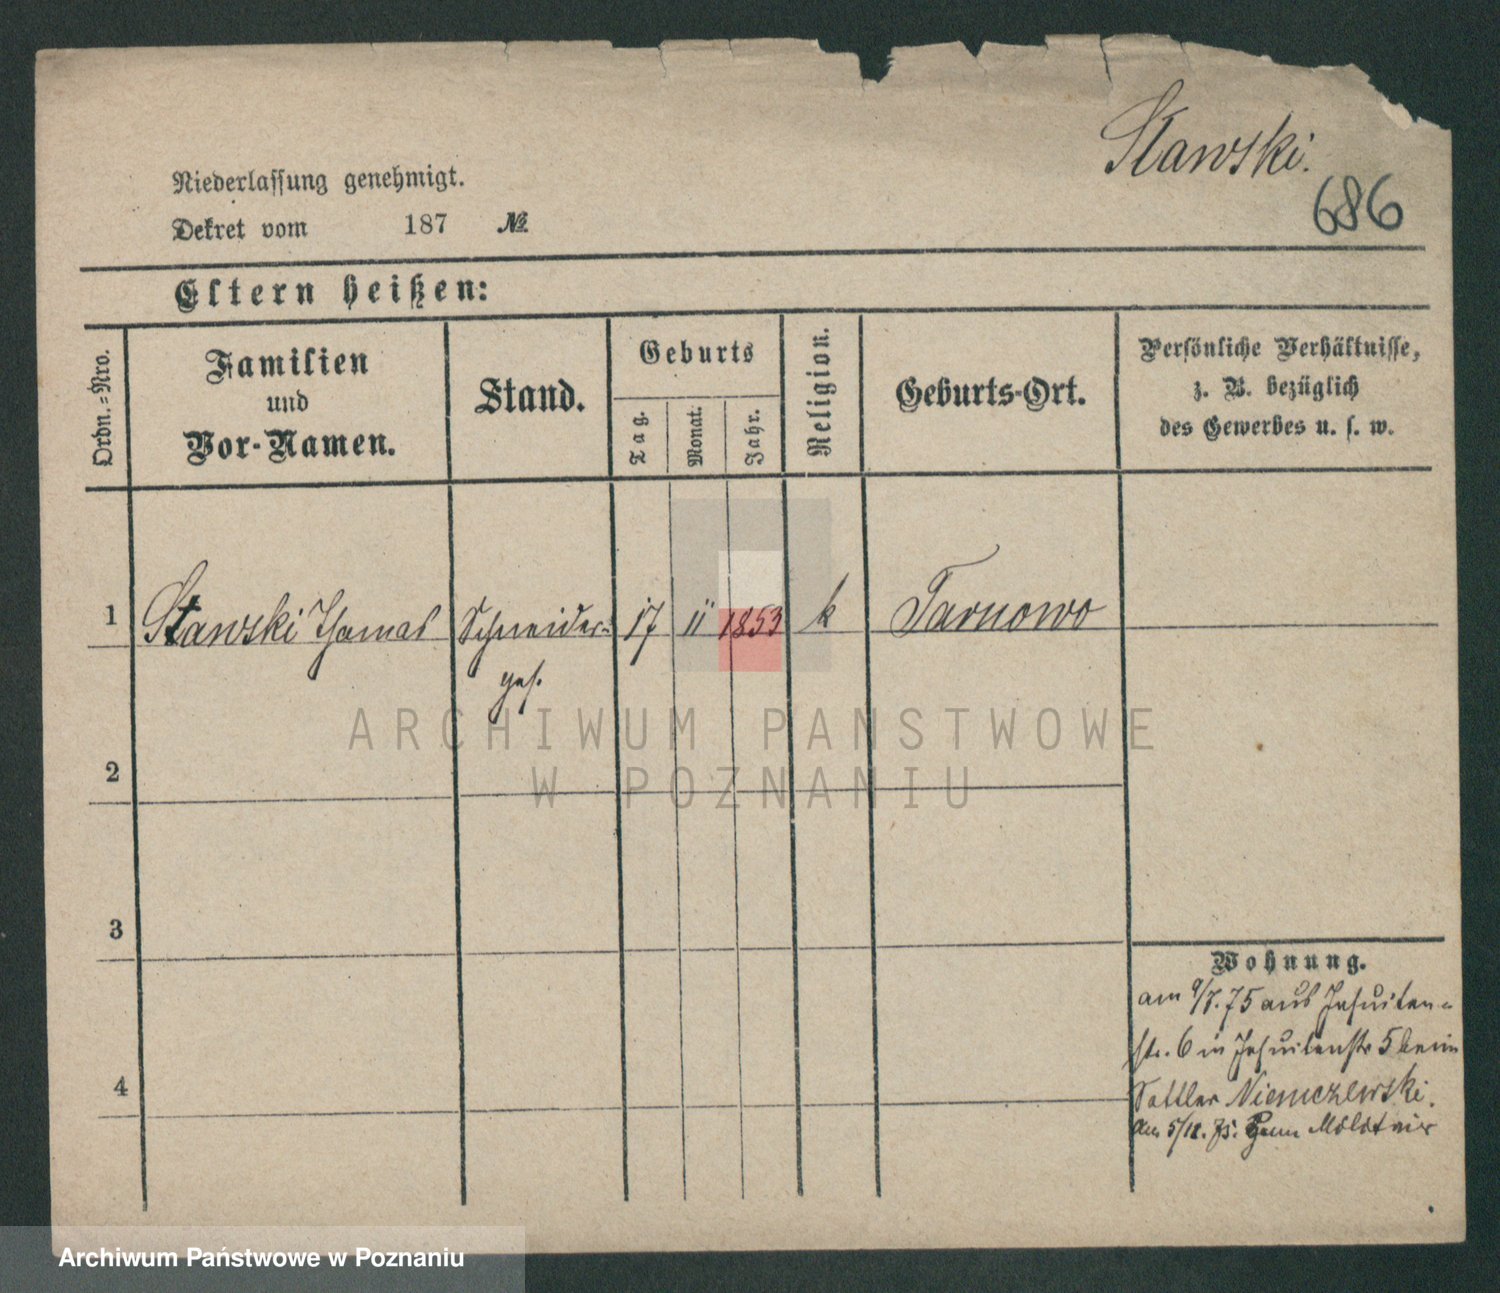 Stawski.
686
Niederlassung genehmigt.
Dekret vom 187 №
Eltern heißen:
Ordn.=Nro.
Familien
und
Vor-Namen.
Stand.
Geburts
Tag.
Monat.
Jahr.
Religion.
Geburts-Ort.
Persönliche Verhältnisse,
z. B. bezüglich
des Gewerbes u. s. w.
1 Stawski Thomas Schneider- 17 11 1853 k Tarnowo
ges.
2
3
4
Wohnung.
am 9/7.75 aus Jesuiten-
str. 6 in Jesuitenstr 5 beim
Sattler Niemczewski.
am 5/11. 75. zum Militair
ARCHIWUM PAŃSTWOWE
W POZNANIU
Archiwum Państwowe w Poznaniu